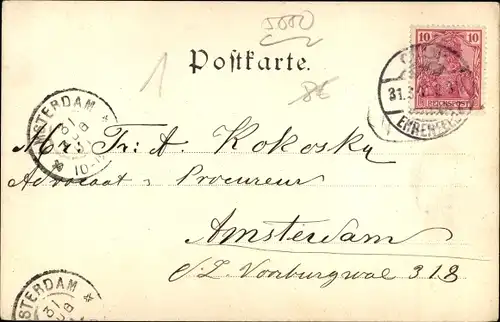 5000
Postkarte.
1
8€
10 10
REICHSPOST
31.3
EHRENFELD
AMSTERDAM
AMSTERDAM
Mr. Fr: A. Kokosky
Advocaat - Procureur
Amsterdam
O.Z. Voorburgwal 318